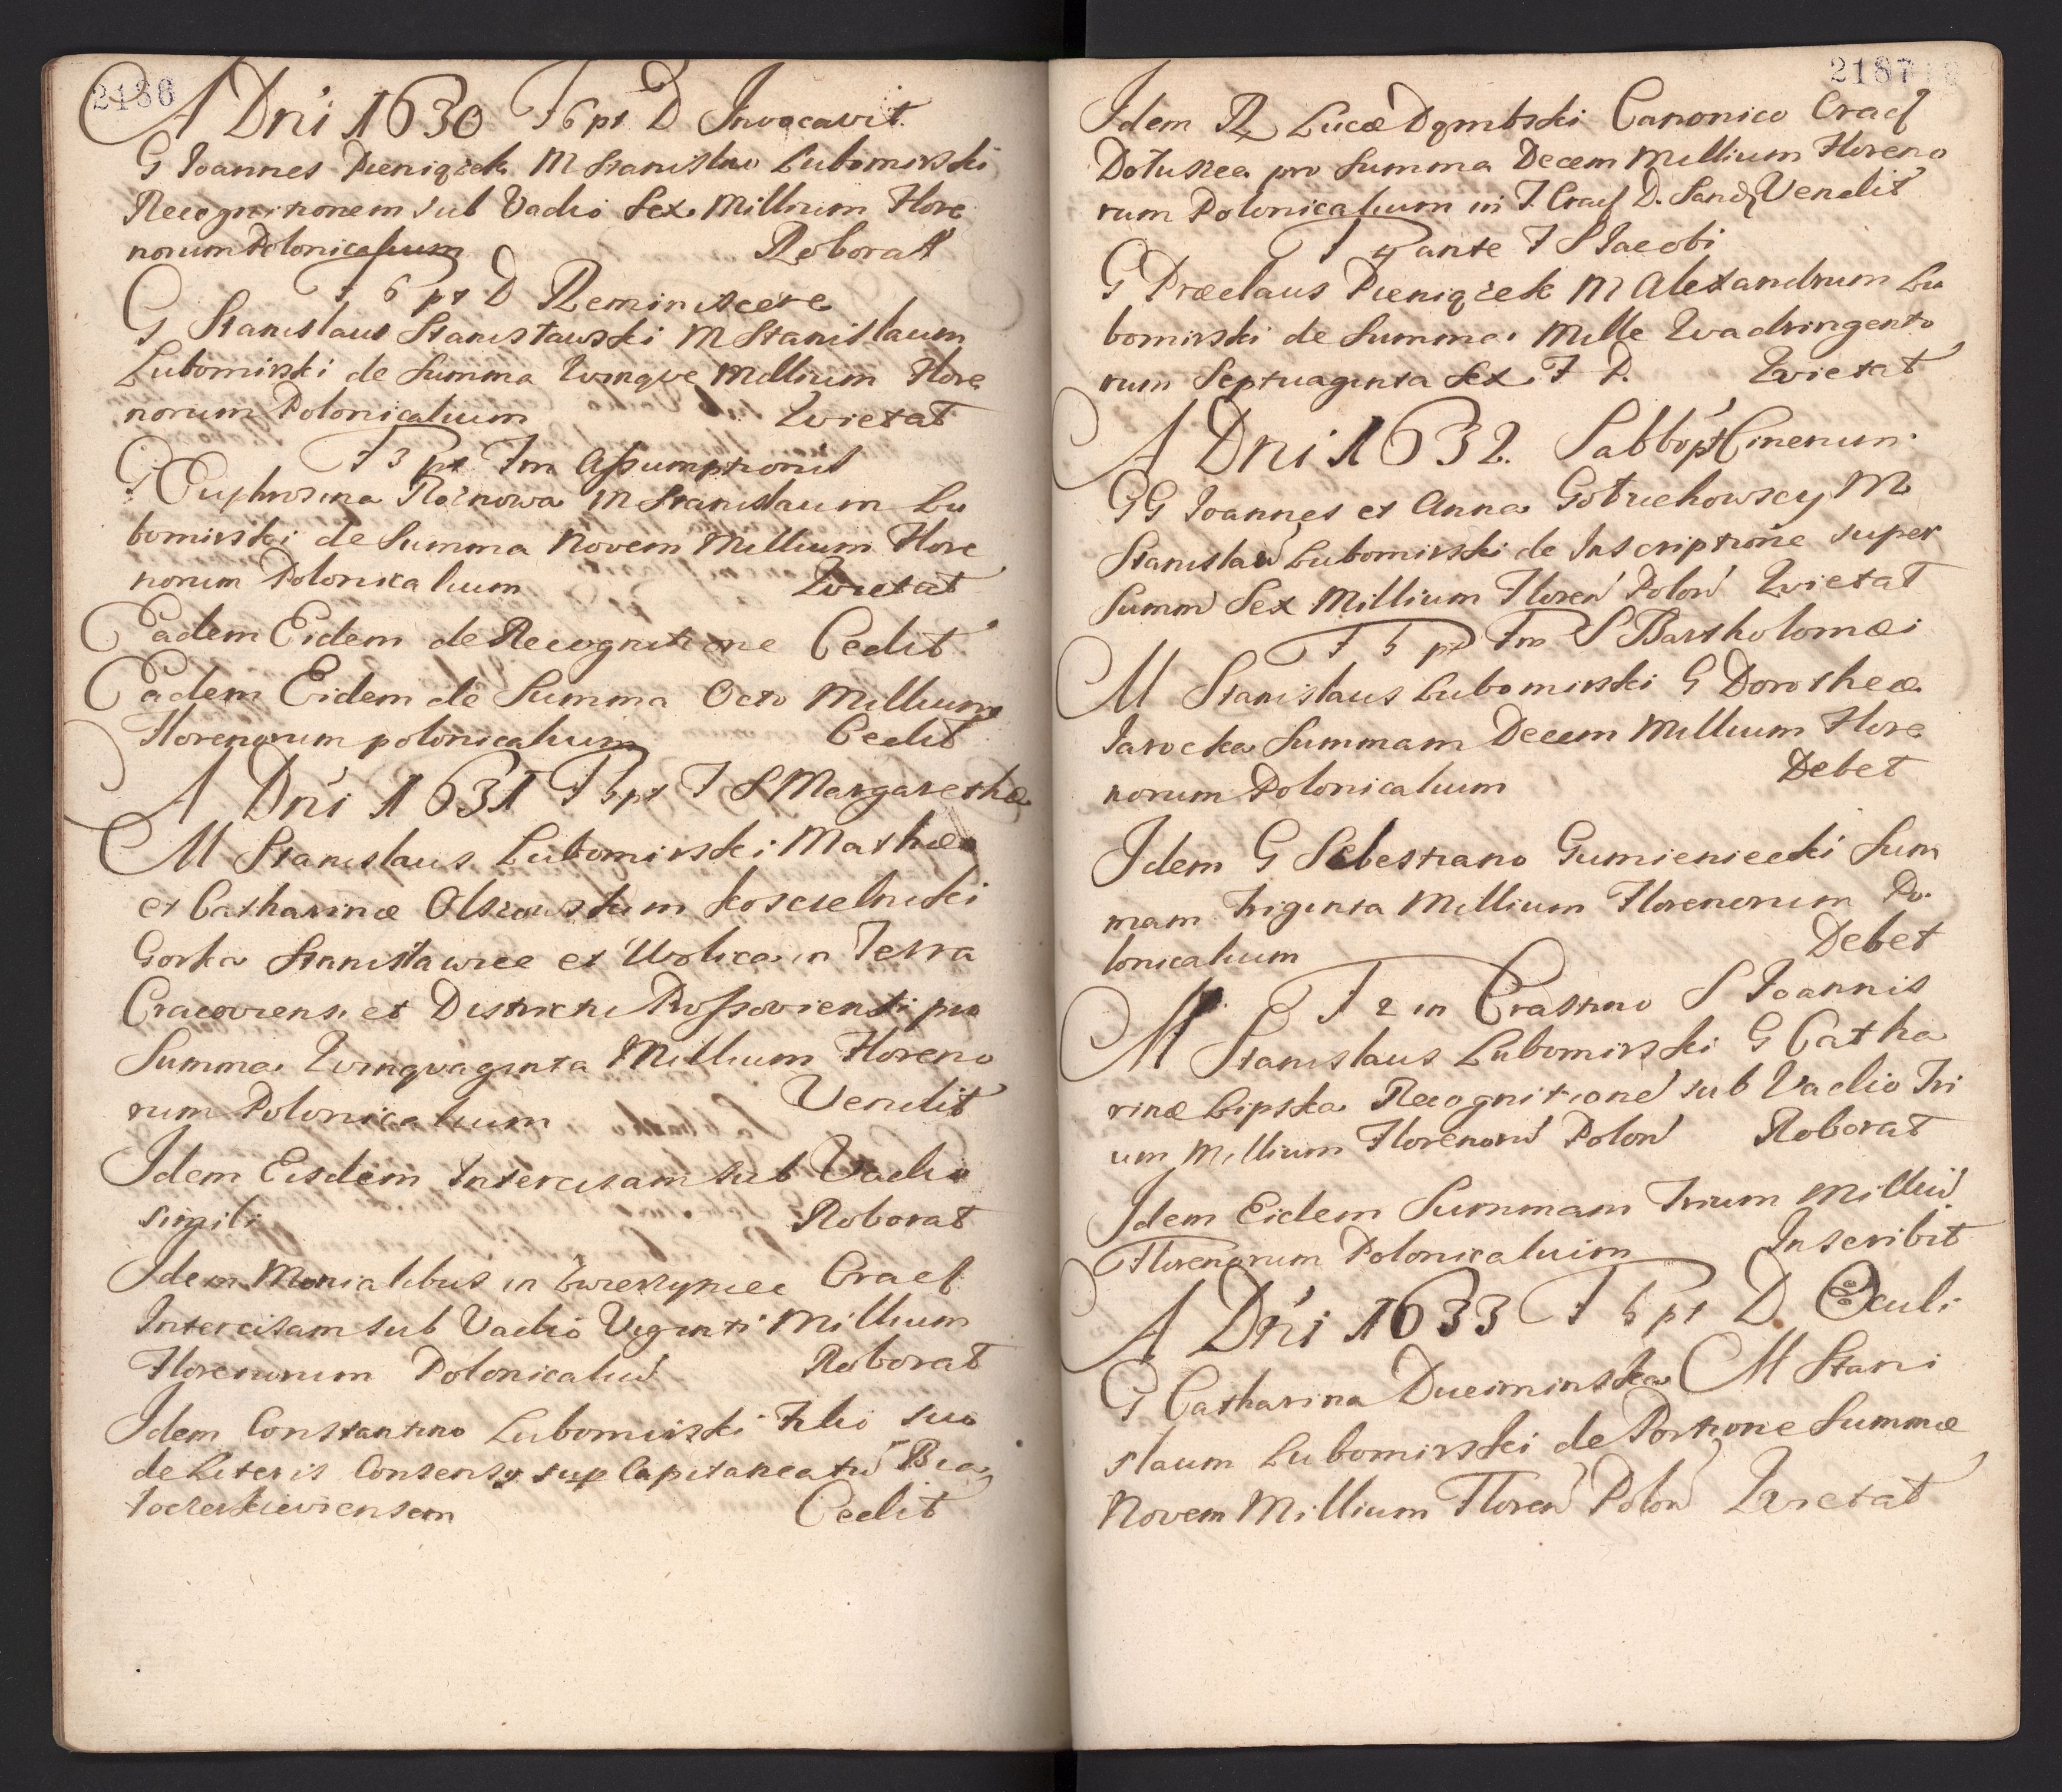 2186
A Dni 1630 F 6 pt D Invocavit.
G Joannes Pieniązek M Stanislao Lubomirski
Recognitionem sub Vadio Sex Millium Flore
norum Polonicalium Roborat
F 6 pt D Reminiscere
G Stanislaus Stanisławski M Stanislaum
Lubomirski de Summa Quinque Millium Flore
norum Polonicalium Quietat
F 3 pt Fm Assumptionis
G Euphrosina Rożnowa M Stanislaum Lu
bomirski de Summa Novem Millium Flore
norum Polonicalium Quietat
Eadem Eidem de Recognitione Cedit
Eadem Eidem de Summa Octo Millium
Florenorum polonicalium Cedit
A Dni 1631 F 6 pt F S Margarethæ
M Stanislaus Lubomirski Mathæo
et Catharinæ Olszowskim Koscielniki
Gorka Stanisławice et Wolica in Terra
Cracoviensi et Districtu Prossoviensi pro
Summa Quinquaginta Millium Floreno
rum Polonicalium Vendit
Idem Eisdem Intercisam sub Vadio
simili Roborat
Idem Monialibus in Zwierzyniec Crac
Intercisam sub Vadio Viginti Millium
Florenorum Polonicaliu Roborat
Idem Constantino Lubomirski Filio suo
de Literis Consensq sup Capitaneatu Bia
łocerkieviensem Cedit
2187
Idem R Lucæ Dąmbski Canonico Crac
Dołuszca pro Summa Decem Millium Floreno
rum Polonicalium in T. Crac D. Sandz Vendit
F 4 ante F S Jacobi
G Prædaus Pieniązek M Alexandrum Lu
bomirski de Summa Mille Quadringento
rum Septuaginta Sex F P. Quietat
A Dni 1632. Sabbo pt Cinerum
GG Joannes et Anna Gołuchowscy M
Stanislau Lubomirski de Inscriptione super
Summ Sex Millium Floren Polon Quietat
F 6 pt Fm S Bartholomæi
M Stanislaus Lubomirski G Dorotheæ
Jarocka Summam Decem Millium Flore
norum Polonicalium Debet
Idem G Sebestiano Gumieniecki Sum
mam Triginta Millium Florenorum Po
lonicalium Debet
F 2 in Crastino S Joannis
M Stanislaus Lubomirski G Catha
rinæ Lipska Recognitione sub Vadio Tri
um Millium Florenoru Polon Roborat
Idem Eidem Summam Trium Milliu
Florenorum Polonicalium Inscribit
A Dni 1633 F 6 pt D. Oculi
G Catharina Dueiminska M Stani
slaum Lubomirski de Portione Summæ
Novem Millium Floren Polon Quietat